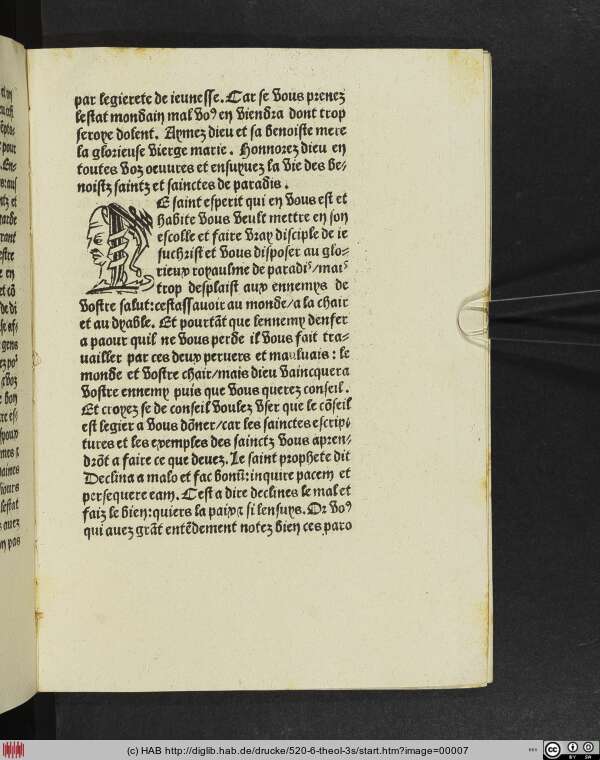 par legierete de ieunesse. Car se vous prenez
lestat mondain mal voꝰ en viendra dont trop
seroye dolent. Aymez dieu et sa benoiste mere
la glorieuse vierge marie. Honnorez dieu en
toutes voz oeuures et ensuyuez la vie des be-
noistz saintz et sainctes de paradis.
E saint esperit qui en vous est et
habite vous veule mettre en son
escolle et faire vray disciple de ie
suchrist et vous disposer au glo-
rieux royaulme de paradiꝰ/maiꝰ
trop desplaist aux ennemys de
vostre salut:cestassauoir au monde/a la chair
et au dyable. Et pourtāt que lennemy denfer
a paour quil ne vous perde il vous fait tra-
uailler par ces deux peruers et mauluais: le
monde et vostre chair/mais dieu vaincquera
vostre ennemy puis que vous querez conseil.
Et croyez se de conseil voulez vser que le cōseil
est legier a vous dōner/car les sainctes escrip-
tures et les exemples des sainctz vous apren-
drōt a faire ce que deuez. Le saint prophete dit
Declina a malo et fac bonū: inquire pacem et
persequere eam. Cest a dire declines le mal et
faiz le bien:quiers la paix⁊ si lensuys. Or voꝰ
qui auez grāt entēdement notez bien ces paro
(c) HAB http://diglib.hab.de/drucke/520-6-theol-3s/start.htm?image=00007